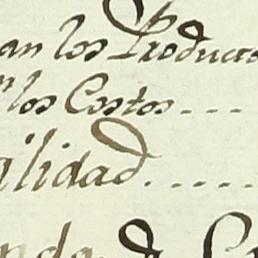 an los Producto
los Costos ----
alidad.....
nda de C